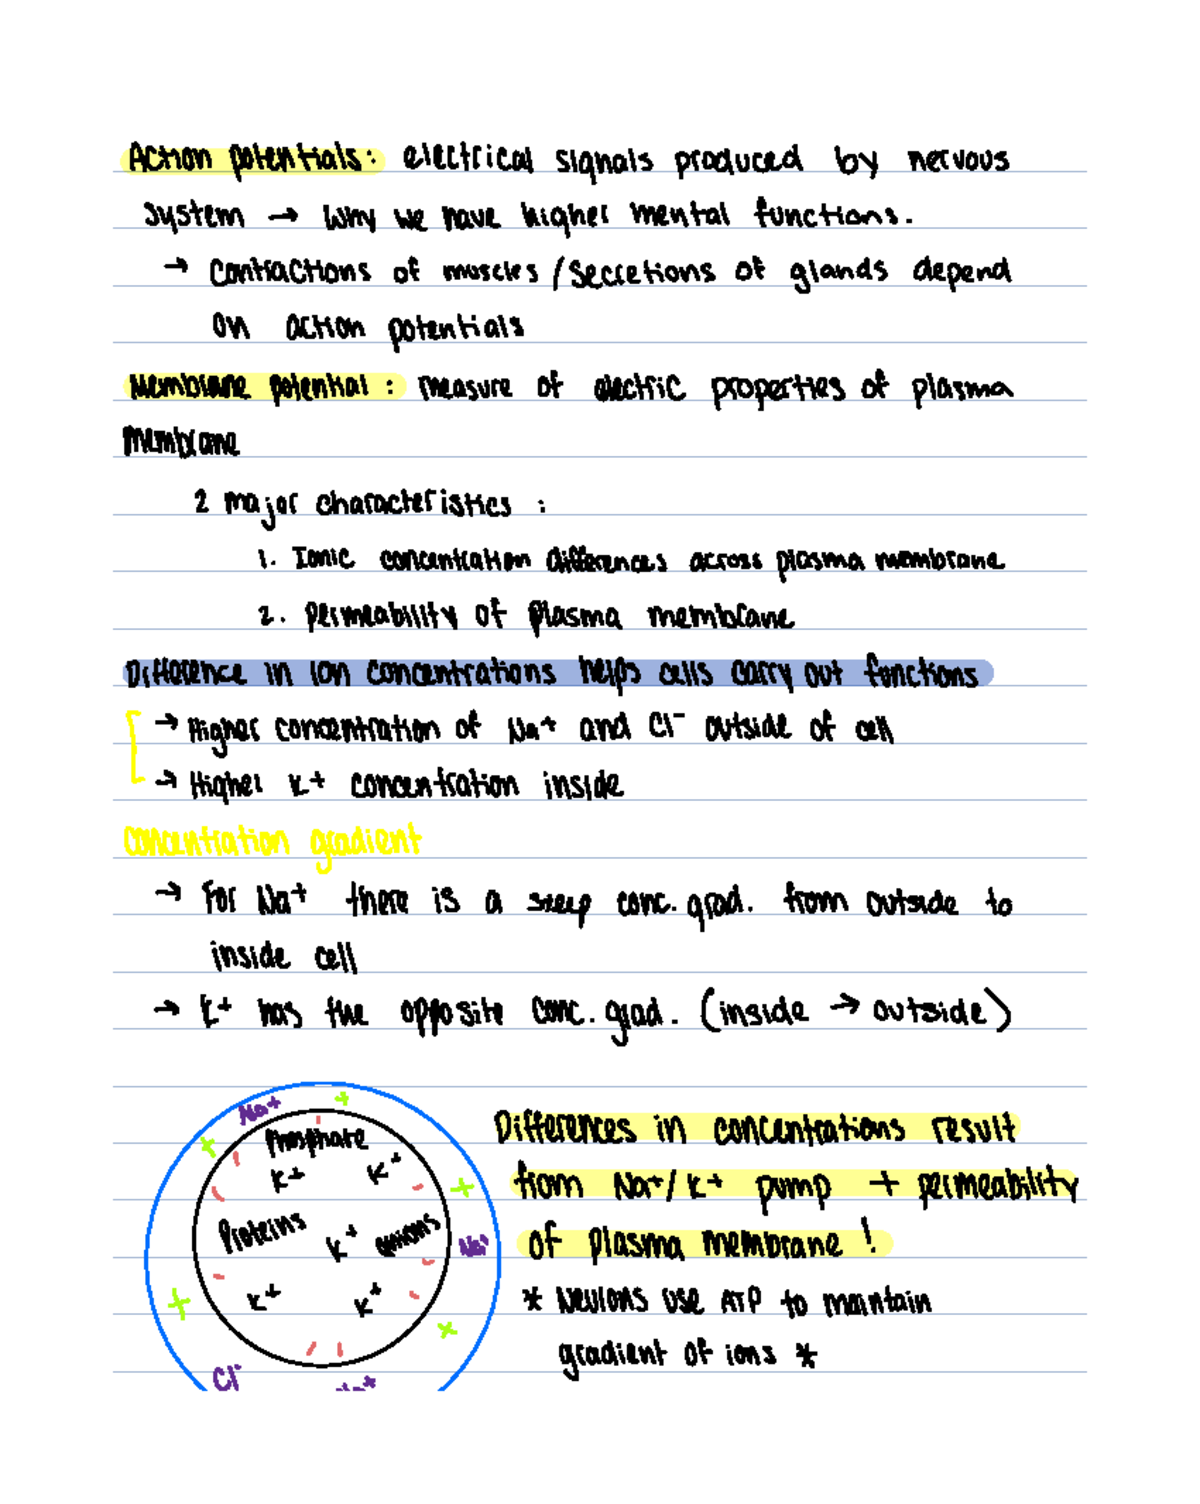 Action potentials: electrical signals produced by nervous
system → Why we have higher mental functions.
→ contractions of muscles / secretions of glands depend
on action potentials
Membrane potential: measure of electric properties of plasma
membrane
2 major characteristics:
1. Ionic concentration differences across plasma membrane
2. permeability of plasma membrane
Difference in ion concentrations helps cells carry out functions
→ Higher concentration of Na+ and Cl- outside of cell
→ Higher K+ concentration inside
Concentration gradient
→ For Na+ there is a steep conc. grad. from outside to
inside cell
→ K+ has the opposite conc. grad. (inside → outside)
Na+ +
+ Phosphate
K+ K+
+
Proteins K+ anions Na+
K+ K+
+ +
Cl- Na+
Differences in concentrations result
from Na+/K+ pump + permeability
of plasma membrane!
* Neurons use ATP to maintain
gradient of ions *